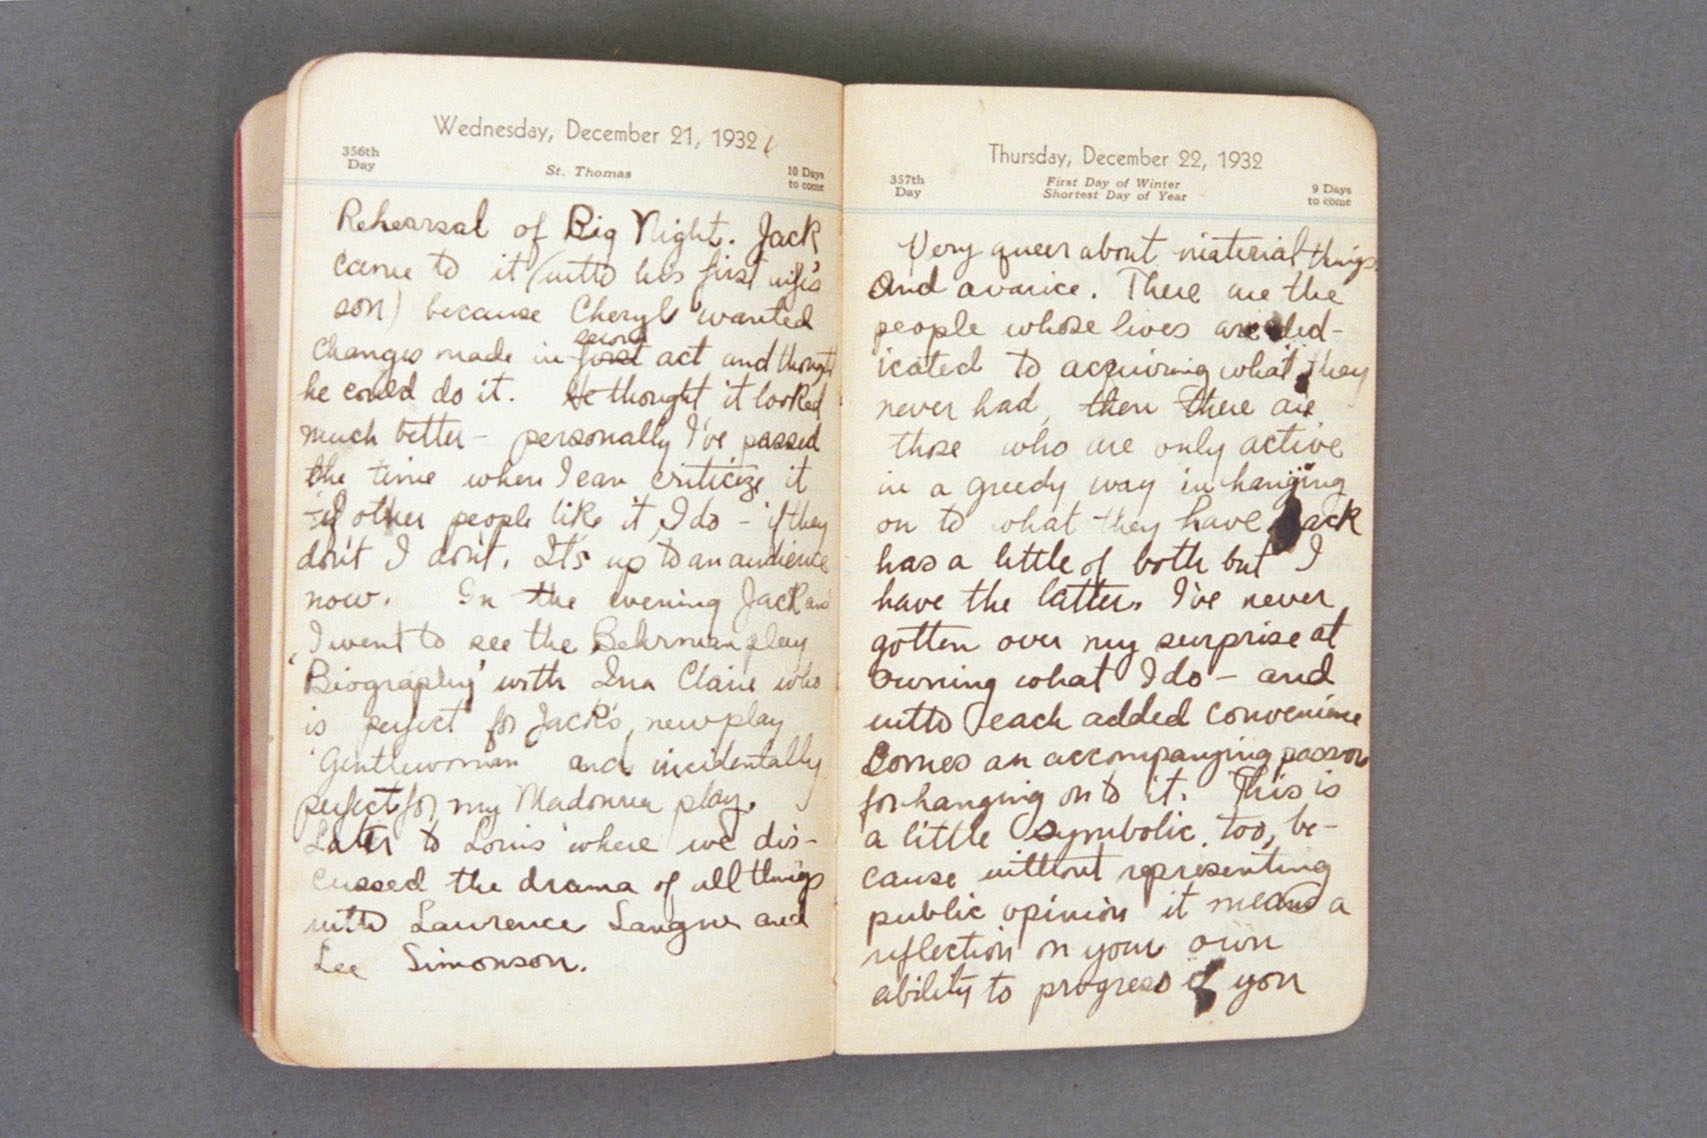 Wednesday, December 21, 1932
356th Day
St. Thomas
10 Days to come
Rehearsal of Big Night. Jack
came to it (with his first wife's
son) because Cheryl wanted
changes made in first second act and thought
he could do it. He thought it looked
much better - personally I've passed
the time when I can criticize it
- if other people like it, I do - if they
don't I don't. It's up to an audience
now. In the evening Jack and
I went to see the Behrman play
'Biography' with Ina Claire who
is perfect for Jack's new play
'Gentlewoman' and incidentally
perfect for my Madonna play.
Later to Louis' where we dis-
cussed the drama of all things
with Lawrence Langner and
Lee Simonson.
Thursday, December 22, 1932
357th Day
First Day of Winter
Shortest Day of Year
9 Days to come
Very queer about material things
and avarice. There are the
people whose lives are ded-
icated to acquiring what they
never had, then there are
those who are only active
in a greedy way in hanging
on to what they have. Jack
has a little of both but I
have the latter. I've never
gotten over my surprise at
owning what I do - and
with each added convenience
comes an accompanying passion
for hanging on to it. This is
a little symbolic, too, be-
cause without representing
public opinion it means a
reflection on your own
ability to progress if you